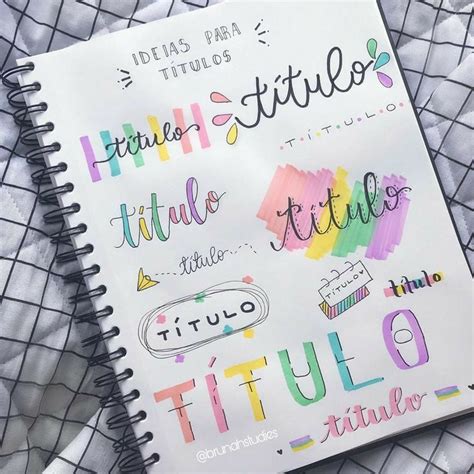 IDEIAS PARA
TÍTULOS
título
título
TÍTULO
título
título
título
TÍTULO
TÍTULO
título
TÍTULO
@brunahstudies
título